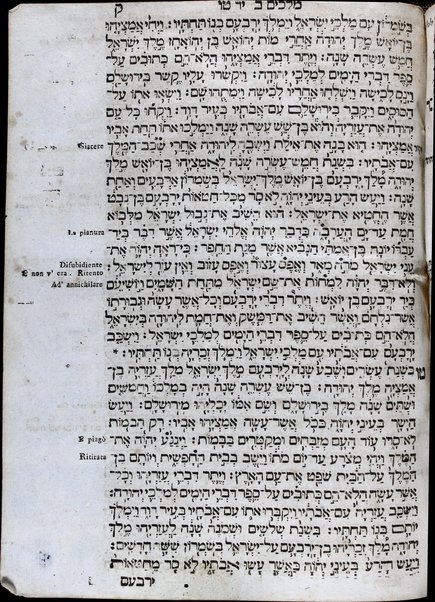 מלכים ב יד טו ק
בשמרון עם מלכי ישראל וימלך ירבעם בנו תחתיו: ויחי אמציהו
בן־יואש מלך יהודה אחרי מות יהואש בן יהואחז מלך ישראל
חמש עשרה שנה: ויתר דברי אמציהו הלא־הם כתובים על־
ספר דברי הימים למלכי יהודה: ויקשרו עליו קשר בירושלם
וינס לכישה וישלחו אחריו לכישה וימתהו שם: וישאו אתו על־
הסוסים ויקבר בירושלם עם־אבתיו בעיר דוד: ויקחו כל עם
יהודה את־עזריה והוא בן־שש עשרה שנה וימלכו אתו תחת אביו
Giacere
אמציהו: הוא בנה את־אילת וישבה ליהודה אחרי שכב־המלך
עם־אבתיו: בשנת חמש־עשרה שנה לאמציהו בן־יואש מלך
יהודה מלך ירבעם בן־יואש מלך־ישראל בשמרון ארבעים ואחת
שנה: ויעש הרע בעיני יהוה לא סר מכל־חטאות ירבעם בן־נבט
אשר החטיא את־ישראל: הוא השיב את־גבול ישראל מלבוא
La pianura
חמת עד־ים הערבה כדבר יהוה אלהי ישראל אשר דבר ביד־
עבדו יונה בן־אמתי הנביא אשר מגת החפר: כי־ראה יהוה את־
Disubidiente
E non v' era. Ritento
עני ישראל מרה מאד ואפס עצור ואפס עזוב ואין עזר לישראל:
Ad' annichilare
ולא־דבר יהוה למחות את־שם ישראל מתחת השמים ויושיעם
ביד ירבעם בן־יואש: ויתר דברי ירבעם וכל־אשר עשה וגבורתו
אשר־נלחם ואשר השיב את־דמשק ואת־חמת ליהודה בישראל
הלא־הם כתובים על־ספר דברי הימים למלכי ישראל: וישכב
ירבעם עם־אבתיו עם מלכי ישראל וימלך זכריה בנו תחתיו:
טו
בשנת עשרים ושבע שנה לירבעם מלך ישראל מלך עזריה בן־
אמציה מלך יהודה: בן־שש עשרה שנה היה במלכו וחמשים
ושתים שנה מלך בירושלם ושם אמו יכליהו מירושלם: ויעש
הישר בעיני יהוה ככל אשר־עשה אמציהו אביו: רק הבמות
לא־סרו עוד העם מזבחים ומקטרים בבמות: וינגע יהוה את־
E piagò
המלך ויהי מצרע עד־יום מתו וישב בבית החפשית ויותם בן־
Ritirata
המלך על־הבית שפט את־עם הארץ: ויתר דברי עזריהו וכל־
אשר עשה הלא־הם כתובים על־ספר דברי הימים למלכי יהודה:
וישכב עזריה עם־אבתיו ויקברו אתו עם־אבתיו בעיר דוד וימלך
יותם בנו תחתיו: בשנת שלשים ושמנה שנה לעזריהו מלך
יהודה מלך זכריהו בן־ירבעם על־ישראל בשמרון ששה חדשים:
ויעש הרע בעיני יהוה כאשר עשו אבתיו לא סר מחטאות
ירבעם